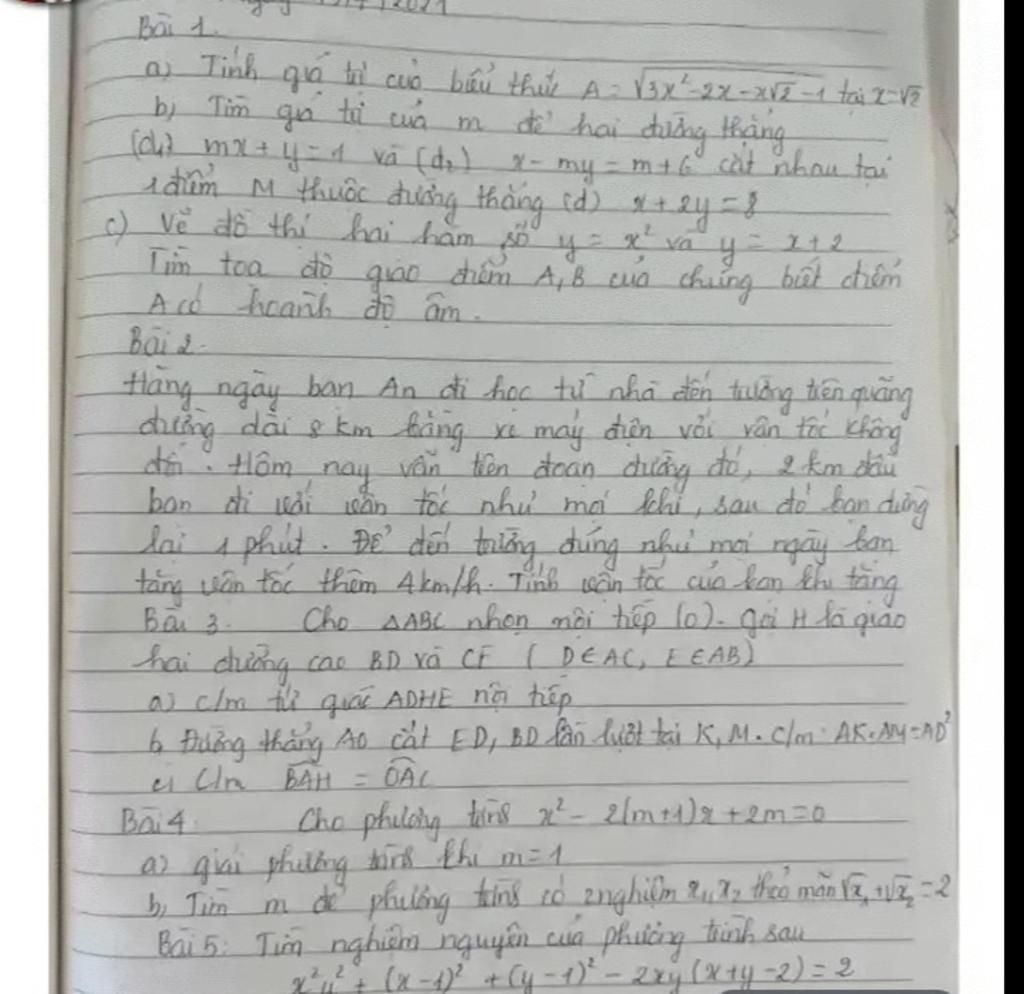 Bài 1.
a) Tính giá trị của biểu thức A = √(3x² - 2x - x√2 - 1) tại x = √2
b) Tìm giá trị của m để hai đường thẳng
(d₁) mx + y = 1 và (d₂) x - my = m + 6 cắt nhau tại
1 điểm M thuộc đường thẳng (d) x + 2y = 8
c) Vẽ đồ thị hai hàm số y = x² và y = x + 2
Tìm toạ độ giao điểm A, B của chúng biết điểm
A có hoành độ âm.
Bài 2.
Hằng ngày bạn An đi học từ nhà đến trường trên quãng
đường dài 8 km bằng xe máy điện với vận tốc không
đổi. Hôm nay vẫn trên đoạn đường đó, 2 km đầu
bạn đi với vận tốc như mọi khi, sau đó bạn dừng
lại 1 phút. Để đến trường đúng như mọi ngày bạn
tăng vận tốc thêm 4 km/h. Tính vận tốc của bạn khi tăng
Bài 3. Cho ΔABC nhọn nội tiếp (O). Gọi H là giao
hai đường cao BD và CE (D∈AC, E∈AB)
a) c/m tứ giác ADHE nội tiếp
b, Đường thẳng AO cắt ED, BD lần lượt tại K, M. c/m AK.AM = AD²
c) C/m BAH = OAC
Bài 4 Cho phương trình x² - 2(m+1)x + 2m = 0
a) giải phương trình khi m = 1
b, Tìm m để phương trình có 2 nghiệm x₁, x₂ thoả mãn √x₁ + √x₂ = 2
Bài 5: Tìm nghiệm nguyên của phương trình sau
x²y² + (x - 1)² + (y - 1)² - 2xy(x + y - 2) = 2